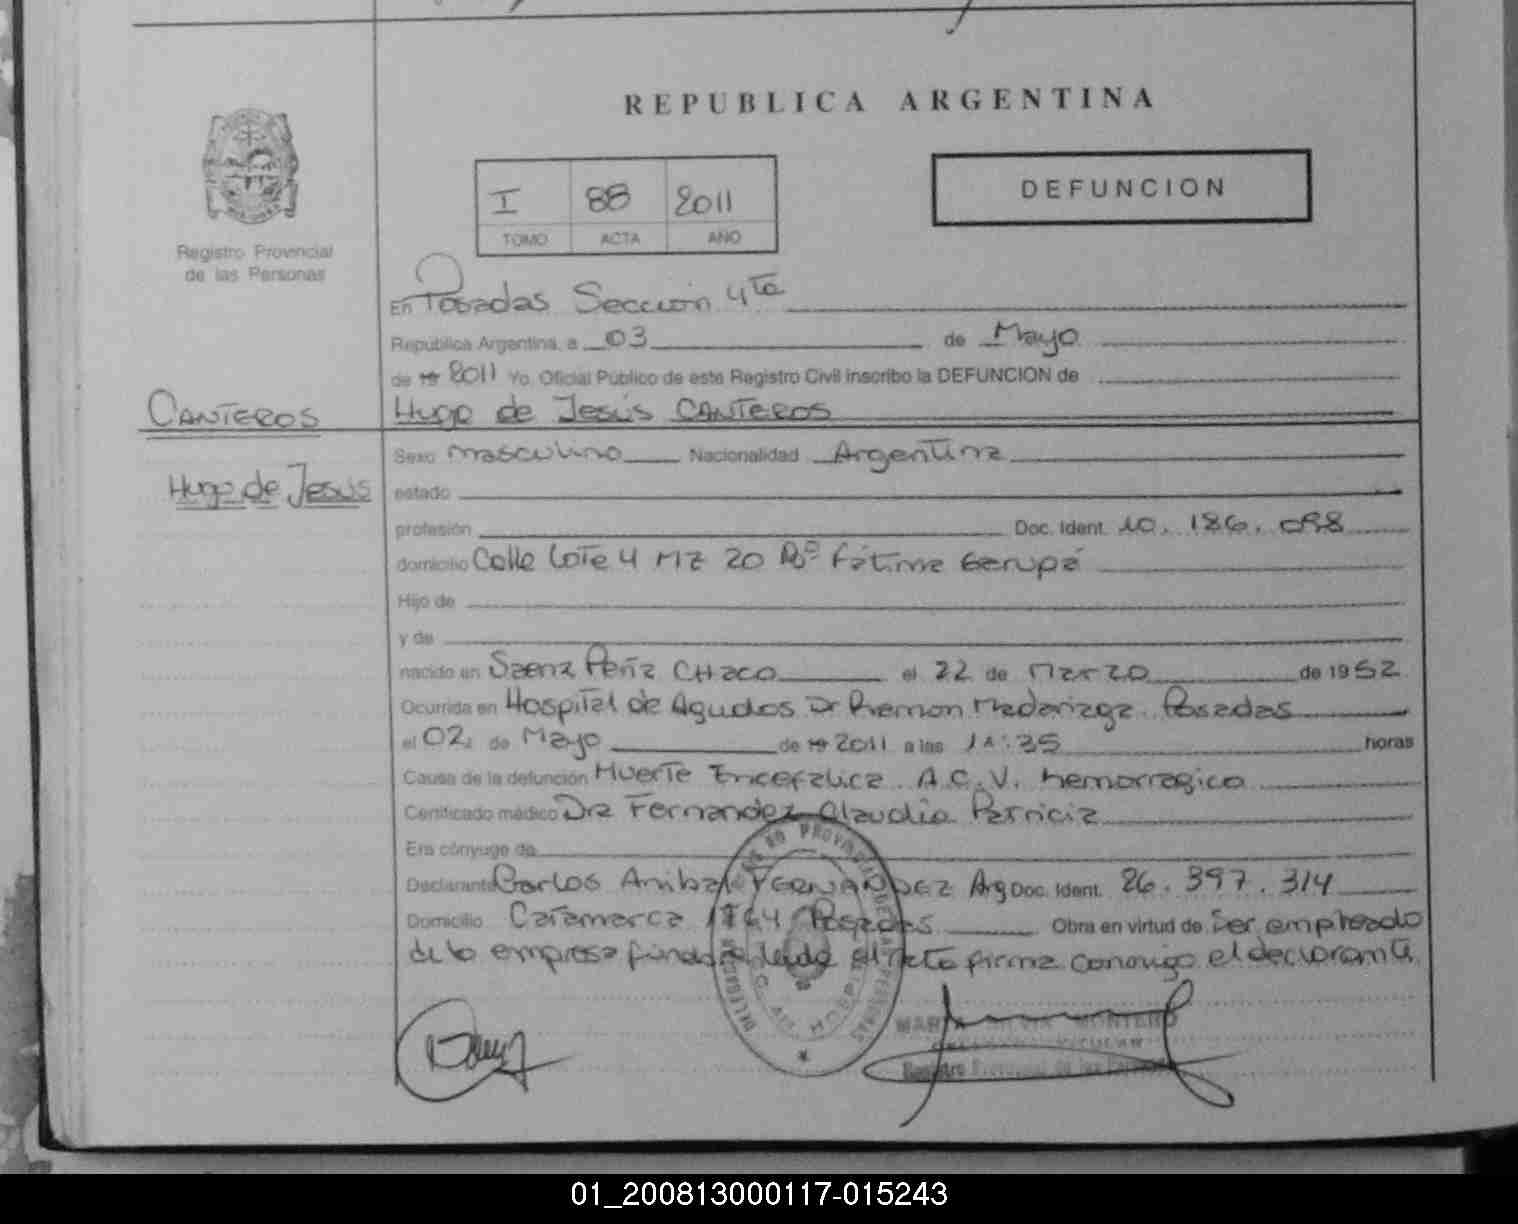 REPUBLICA ARGENTINA
DEFUNCION
I 88 2011
TOMO ACTA AÑO
Registro Provincial
de las Personas
En Posadas Sección 4ta
República Argentina, a 03 de Mayo
de 19 2011 Yo, Oficial Público de este Registro Civil inscribo la DEFUNCION de
CANTEROS
Hugo de Jesús CANTEROS
Hugo de Jesús
Sexo masculino Nacionalidad Argentina
estado
profesión Doc. Ident. 10.186.098
domicilio Calle Lote 4 MZ 20 Bº Fátima Garupá
Hijo de
y de
nacido en Saenz Peña CHaco el 22 de Marzo de 1952
Ocurrida en Hospital de Agudos Dr Ramon Madariaga. Posadas
el 02 de Mayo de 19 2011 a las :35 horas
Causa de la defunción Muerte Encefalica. A.C.V. hemorragico
Certificado médico Dra Fernandez Claudia Patricia
Era cónyuge de
Declarante Carlos Anibal FERNANDEZ Arg Doc. Ident. 26.397.314
Domicilio Catamarca 1764 Posadas Obra en virtud de Ser empleado
de la empresa funebre leida el acta firma conmigo el declarante.
MONTERO
TITULAR
Registro Provincial de las Personas
01_200813000117-015243